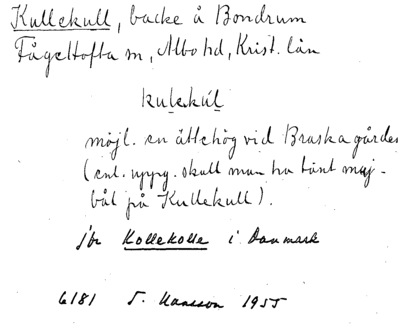 Kullekull, backe å Bondrum
Fågeltofta sn, Albo hd, Krist. län
kulekúl
möjl. en ättehög vid Braska gården
(enl. uppg. skall man ha tänt maj-
bål på Kullekull).
jfr Kollekolle i Danmark
6181 S. Hansson 1955